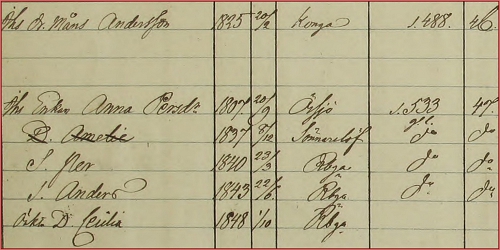 Åhs Dr. Måns Andersson 1825 20/2 Konga s. 488. 46.
Åhs Enkan Anna Persdr 1807 20/9 Örsjö s. 533 47.
D. Amelie 1837 8/12 Simmarelöf do do
S. Per 1840 23/3 Rbga do do
S. Anders 1843 22/6 Rbga do do
D. Cecilia 1848 1/10 Rbga